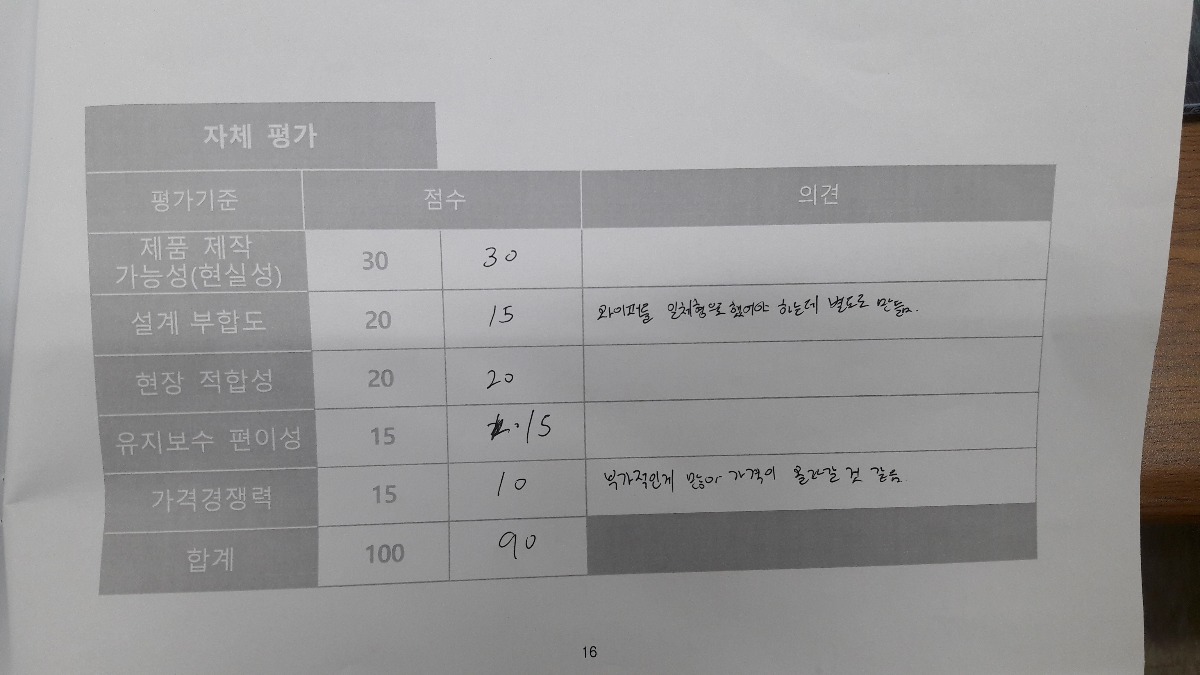 자체 평가
평가기준 점수 의견
제품 제작
가능성(현실성) 30 30
설계 부합도 20 15 와이퍼를 일체형으로 했어야 하는데 별도로 만듦.
현장 적합성 20 20
유지보수 편이성 15 15
가격경쟁력 15 10 부가적인게 많아 가격이 올라갈 것 같음.
합계 100 90
16